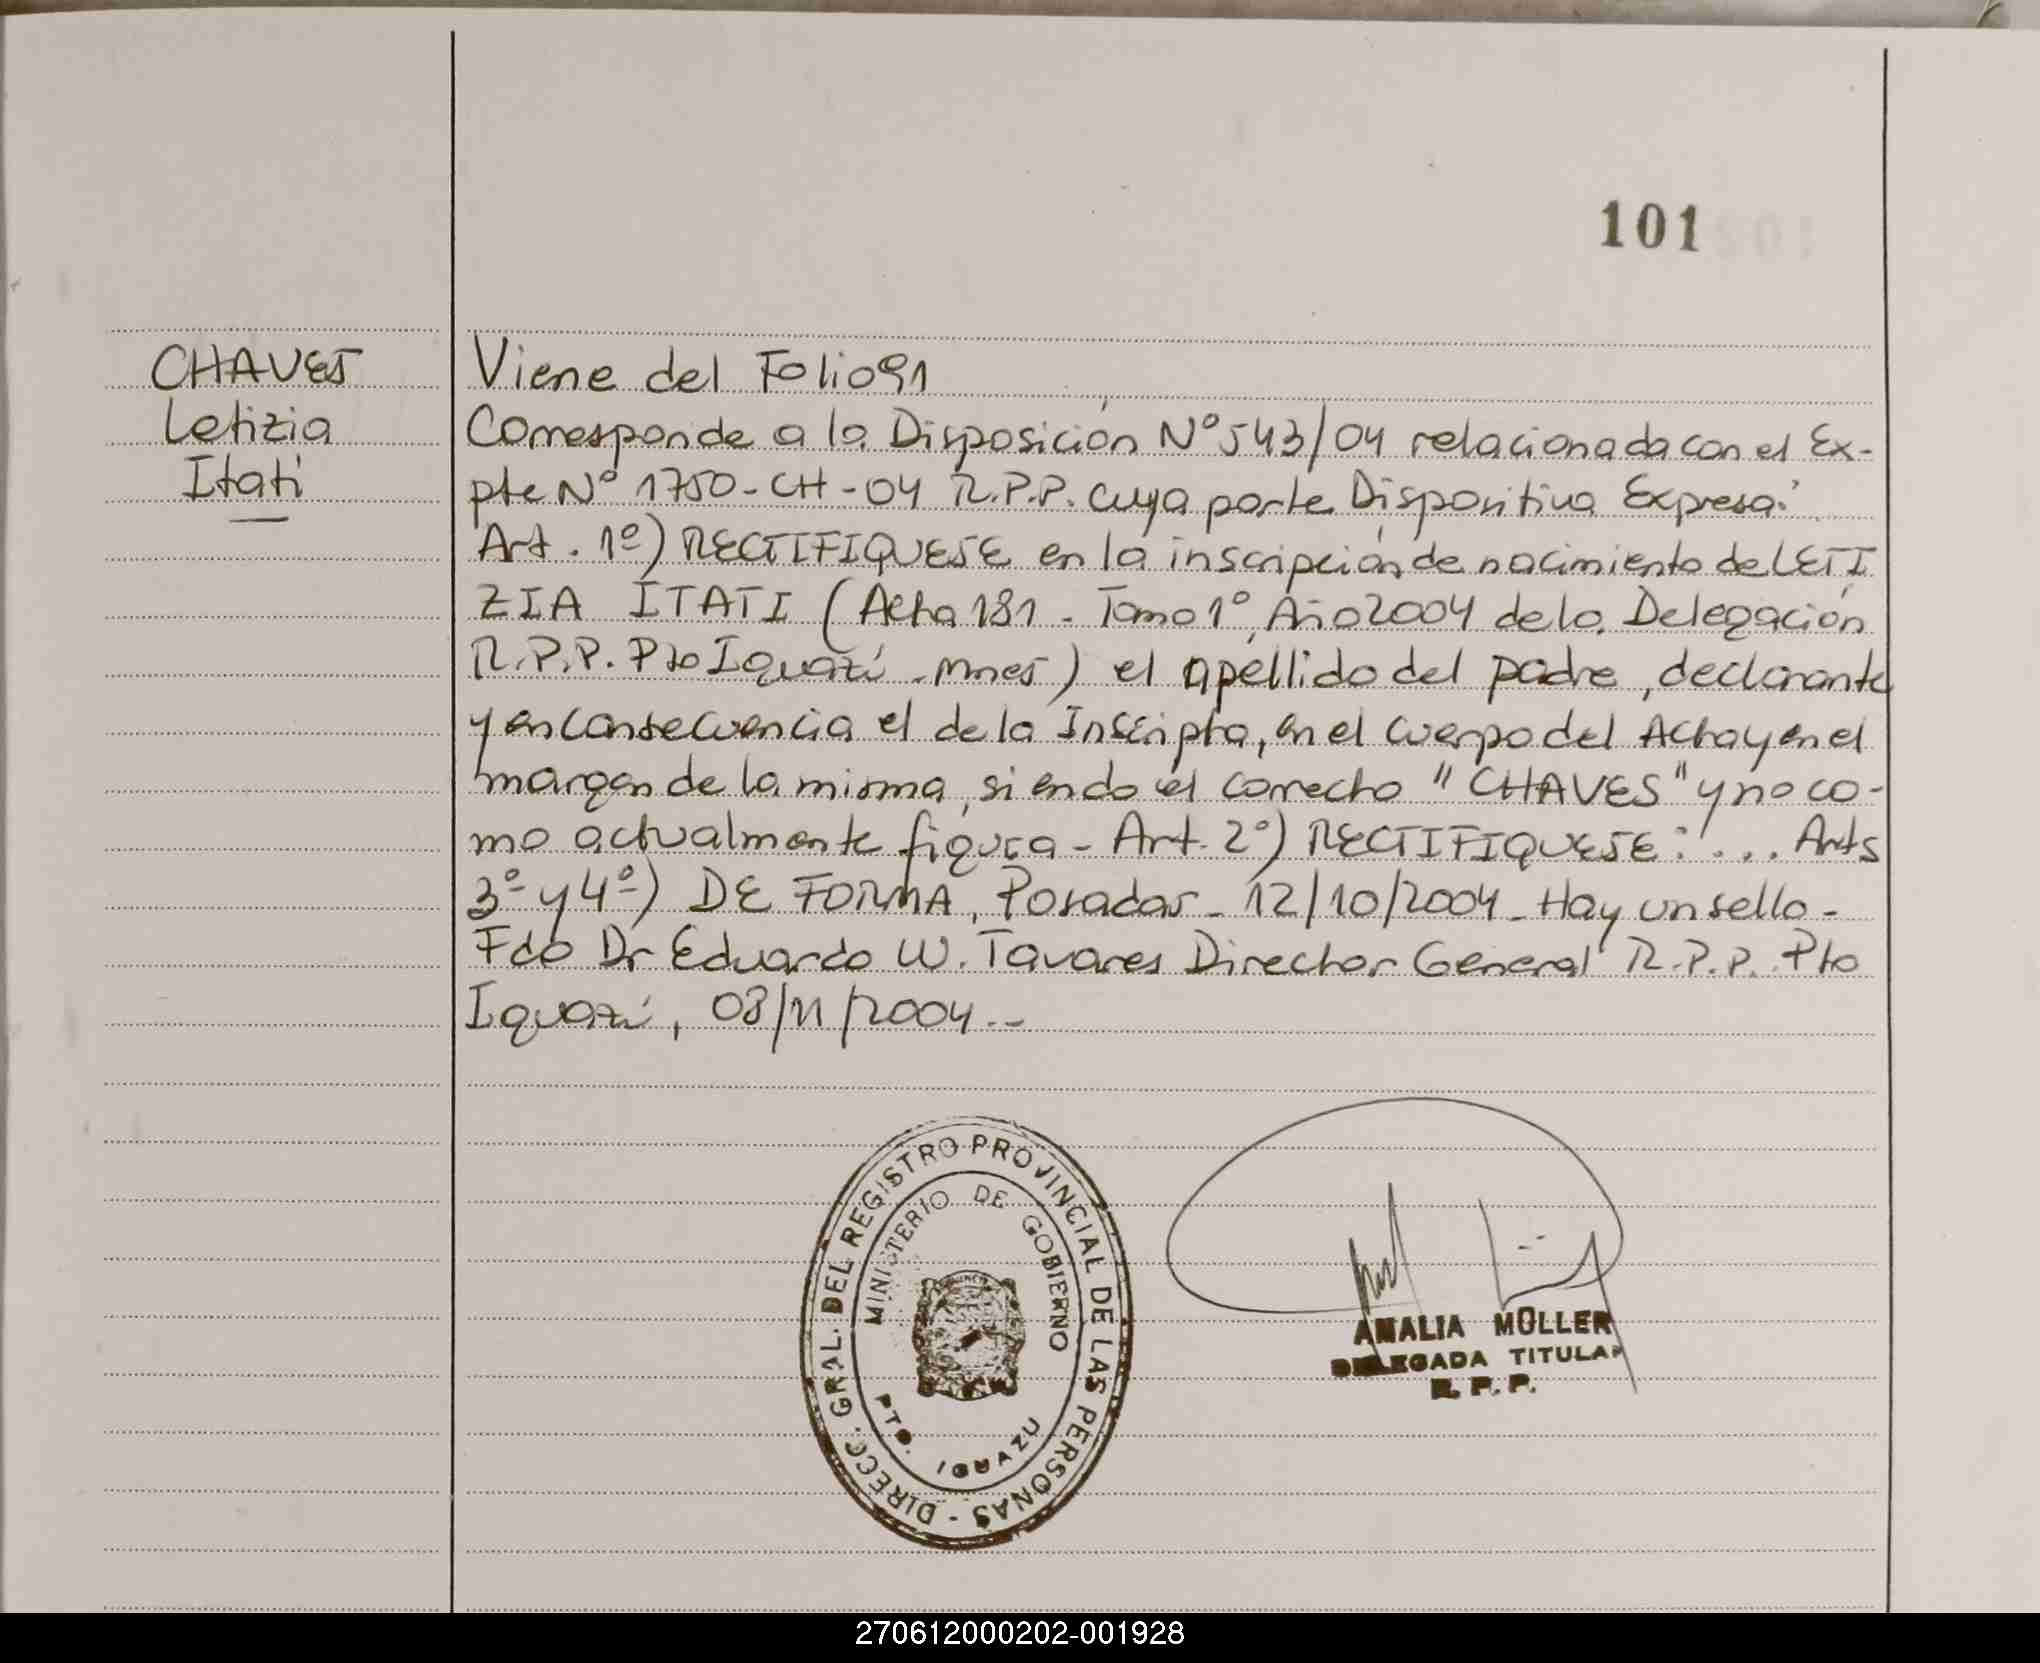 101
CHAVES
Letizia
Itati
Viene del Folio 91
Corresponde a la Disposición Nº 543/04 relacionada con el Ex-
pte Nº 1750-CH-04 R.P.P. cuya parte Dispositiva Expresa:
Art. 1º) RECTIFIQUESE en la inscripción de nacimiento de LETI
ZIA ITATI (Acta 181 - Tomo 1º, Año 2004 de la Delegación
R.P.P. Pto Iguazú - Mnes) el apellido del padre, declarante
y en consecuencia el de la Inscripta, en el cuerpo del Acta y en el
margen de la misma, siendo el correcto "CHAVES" y no co-
mo actualmente figura - Art. 2º) RECTIFIQUESE: ... Arts
3º y 4º) DE FORMA, Posadas - 12/10/2004 - Hay un sello -
Fdo Dr Eduardo W. Tavares Director General R.P.P. Pto
Iguazú, 08/11/2004 --
DIRECC. GRAL. DEL REGISTRO PROVINCIAL DE LAS PERSONAS -
MINISTERIO DE GOBIERNO
PTO. IGUAZU
AMALIA MÜLLER
DELEGADA TITULAR
R. P. P.
270612000202-001928